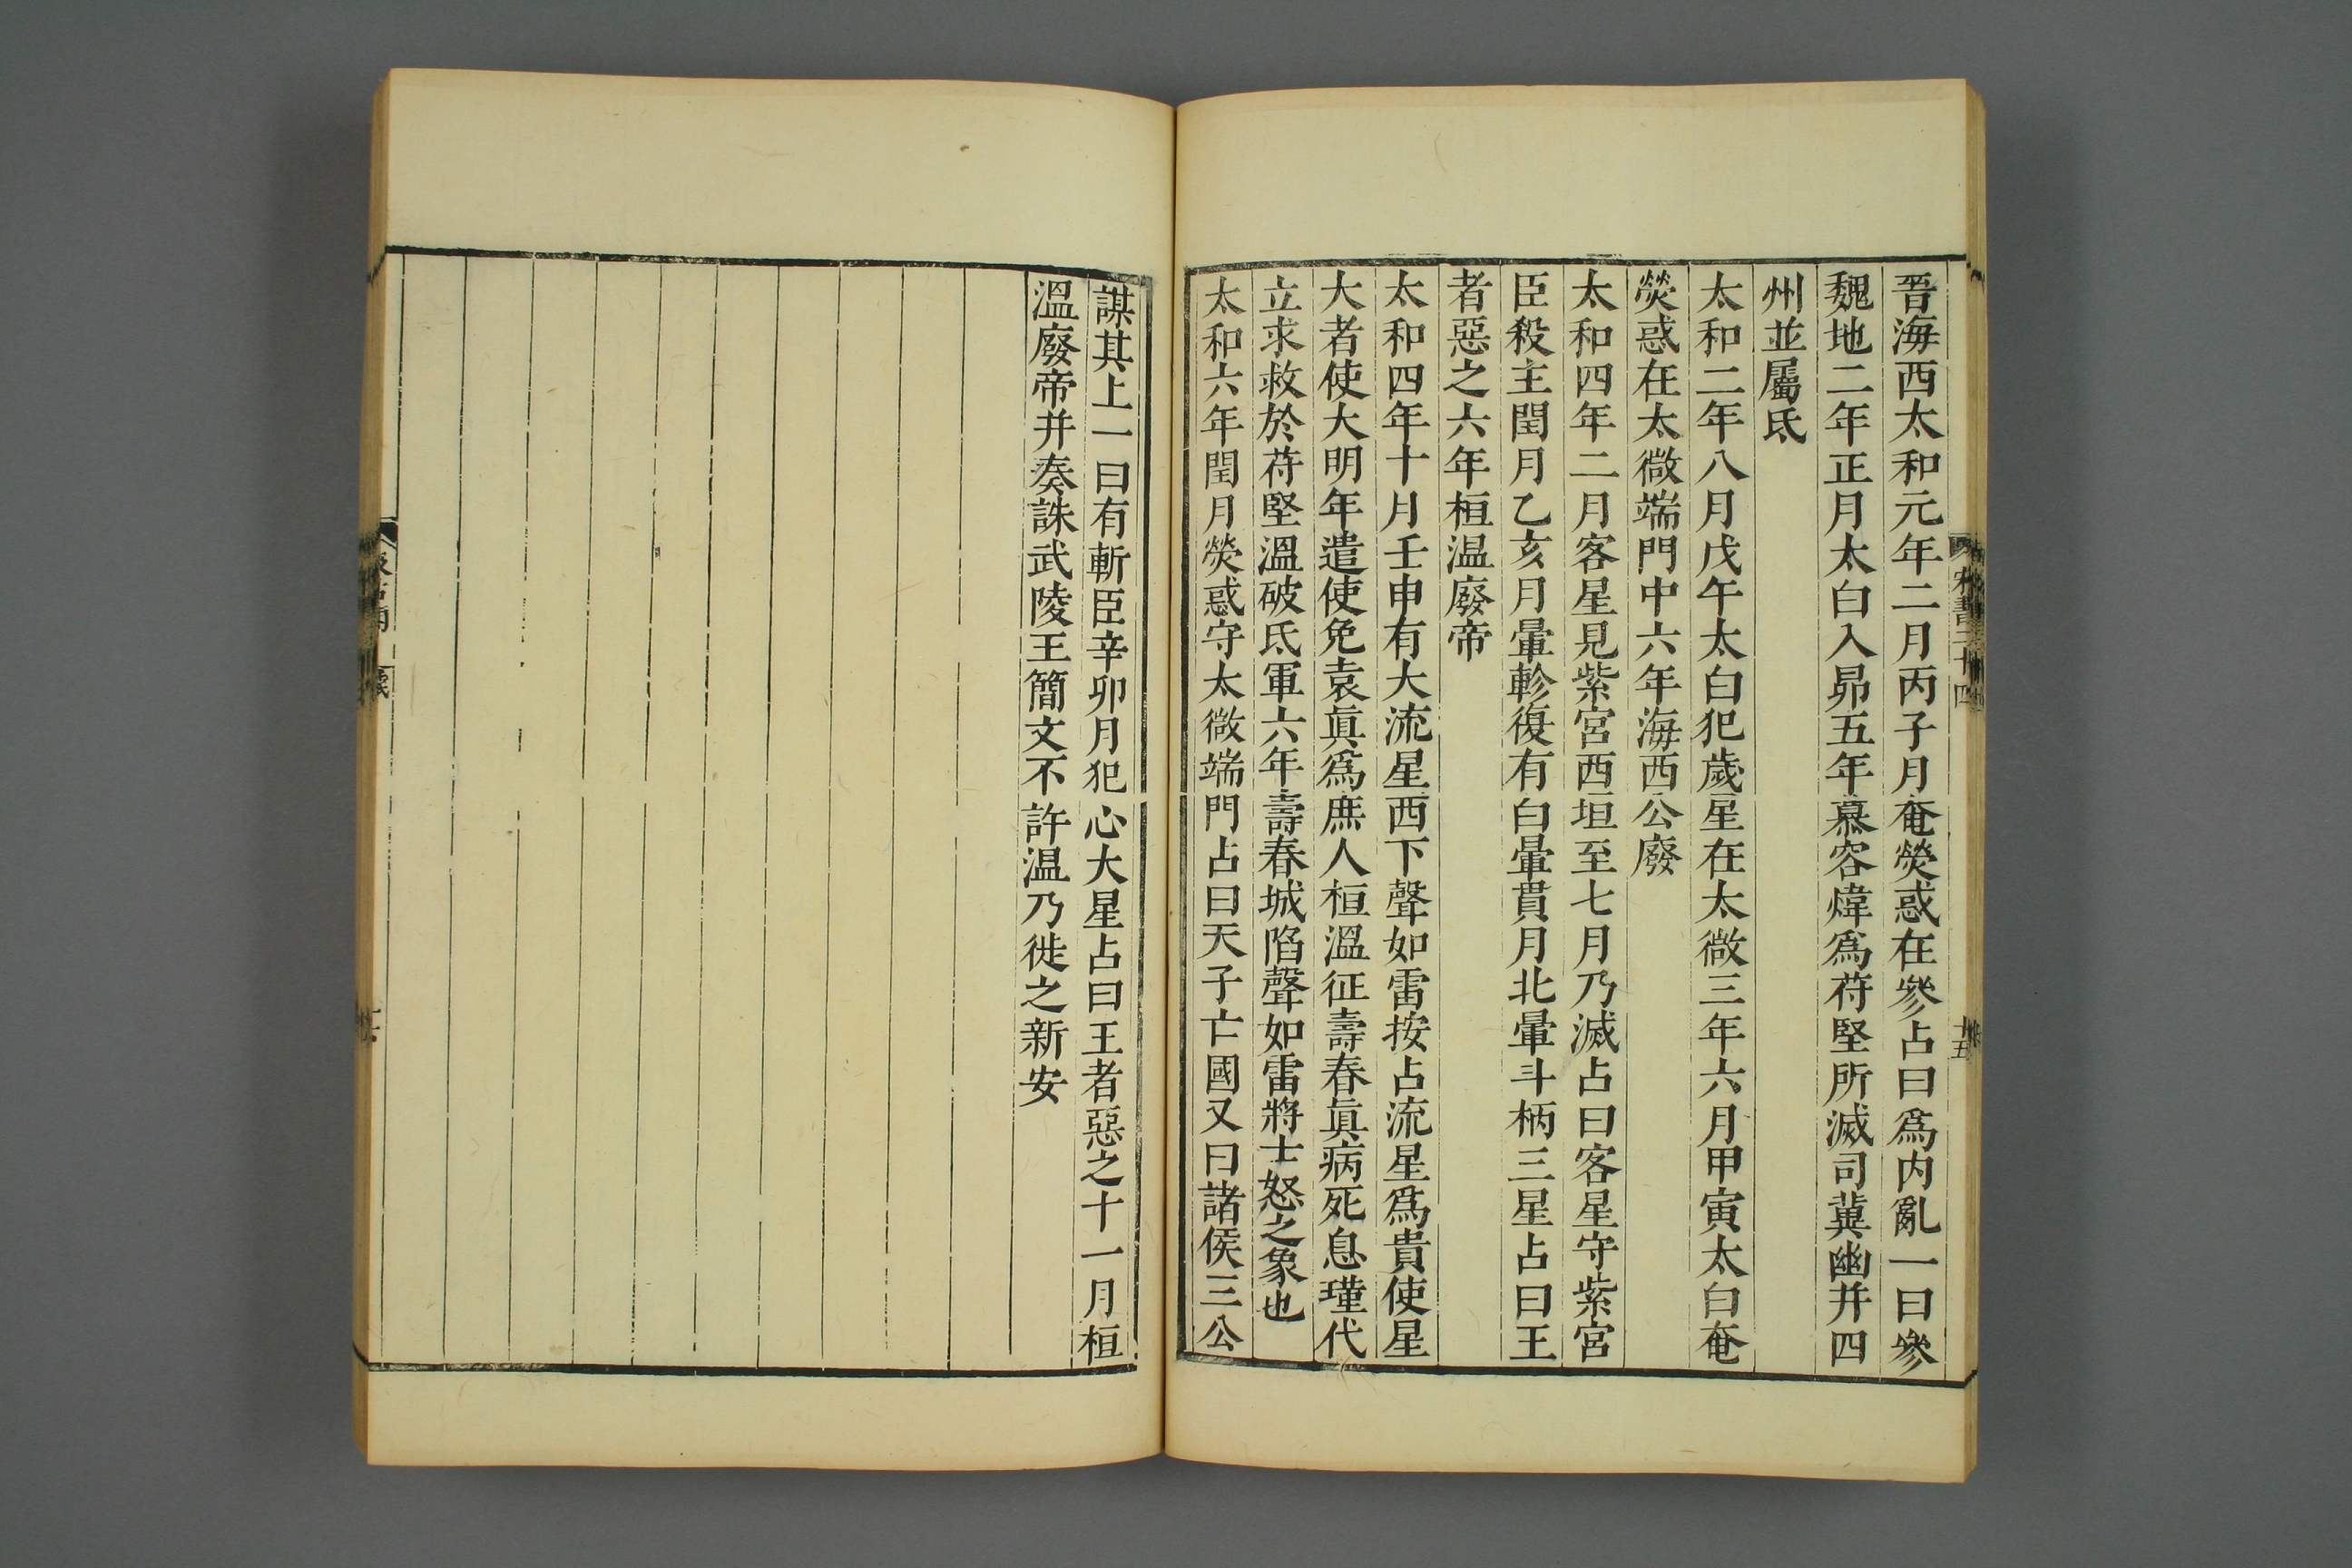 晉海西太和元年二月丙子月奄熒惑在參占曰爲内亂一曰參
魏地二年正月太白入昴五年慕容煒爲苻堅所滅司冀幽并四
州並屬氐
太和二年八月戊午太白犯歲星在太微三年六月甲寅太白奄
熒惑在太微端門中六年海西公廢
太和四年二月客星見紫宮西垣至七月乃滅占曰客星守紫宮
臣殺主閏月乙亥月暈軫復有白暈貫月北暈斗柄三星占曰王
者惡之六年桓温廢帝
太和四年十月壬申有大流星西下聲如雷按占流星爲貴使星
大者使大明年遣使免袁眞爲庶人桓溫征壽春眞病死息瑾代
立求救於苻堅溫破氐軍六年壽春城陷聲如雷將士怒之象也
太和六年閏月熒惑守太微端門占曰天子亡國又曰諸侯三公
謀其上一曰有斬臣辛卯月犯心大星占曰王者惡之十一月桓
溫廢帝并奏誅武陵王簡文不許温乃徙之新安